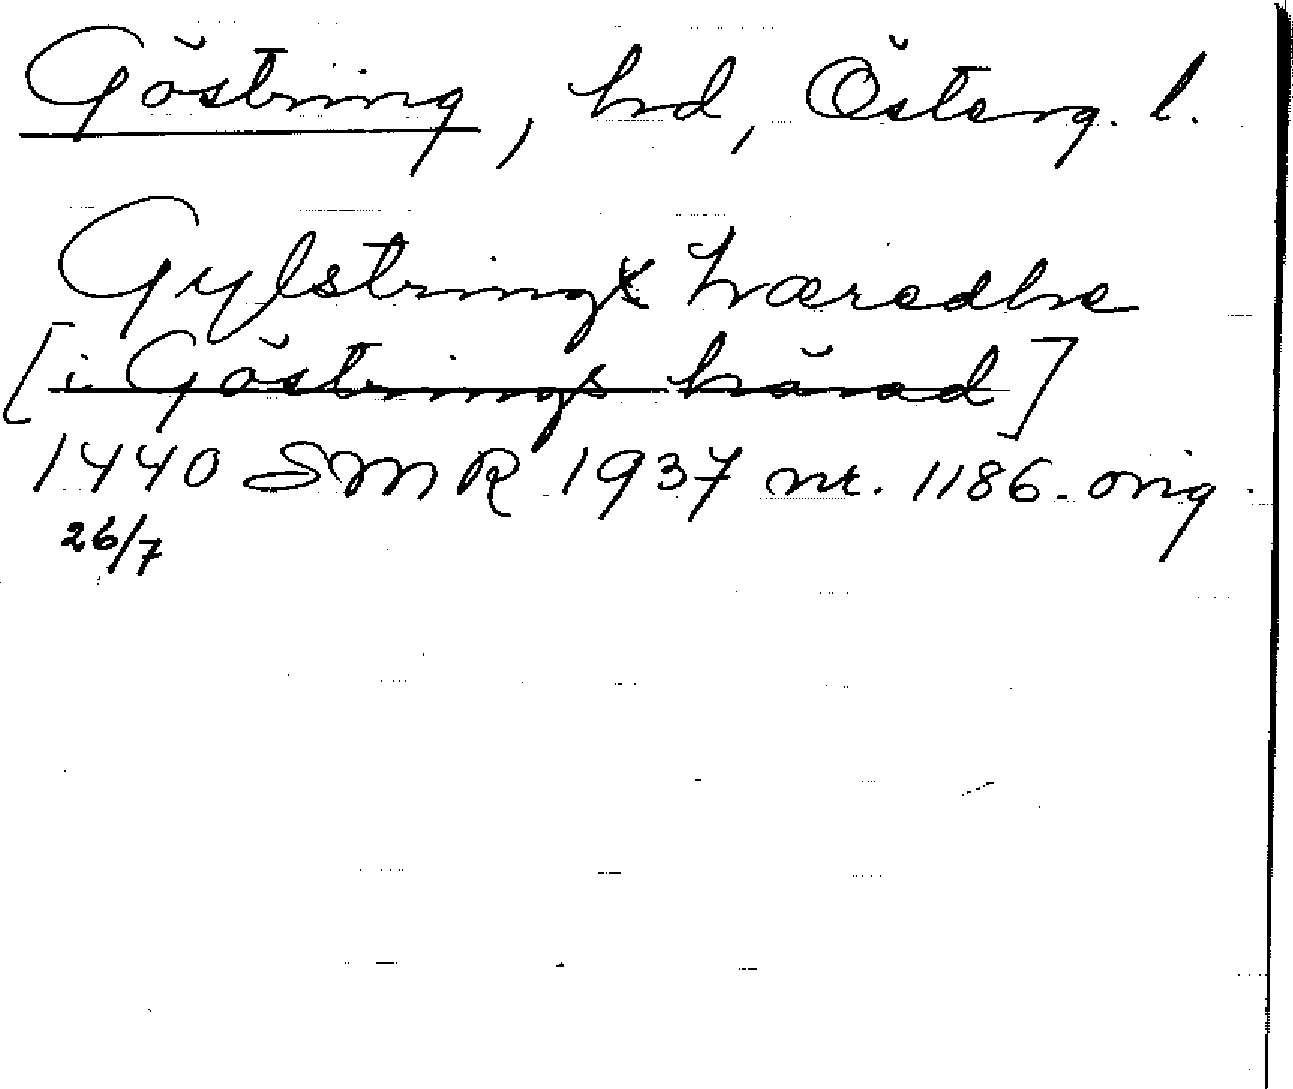 Göstring, hd, Österg. l.
Gylstringx hæredhe
[i Göstrings härad]
1440 SMR 1937 nr. 1186. orig.
26/7